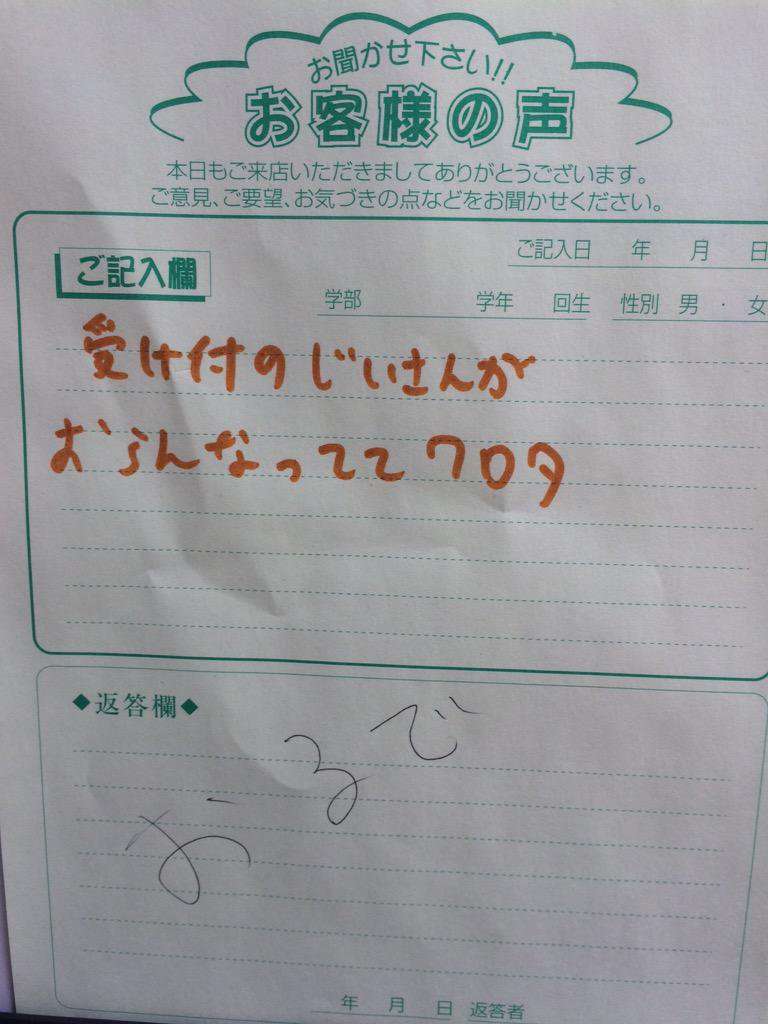 お聞かせ下さい!!
お客様の声
本日もご来店いただきましてありがとうございます。
ご意見、ご要望、お気づきの点などをお聞かせください。
ご記入日 年 月 日
ご記入欄
学部 学年 回生 性別 男 ・ 女
受け付のじいさんが
おらんなっててワロタ
◆返答欄◆
おるで
年 月 日 返答者